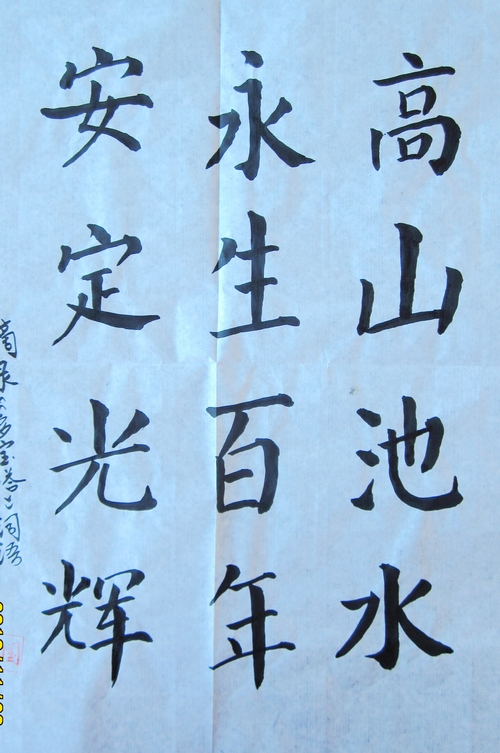 高山池水
永生百年
安定光辉